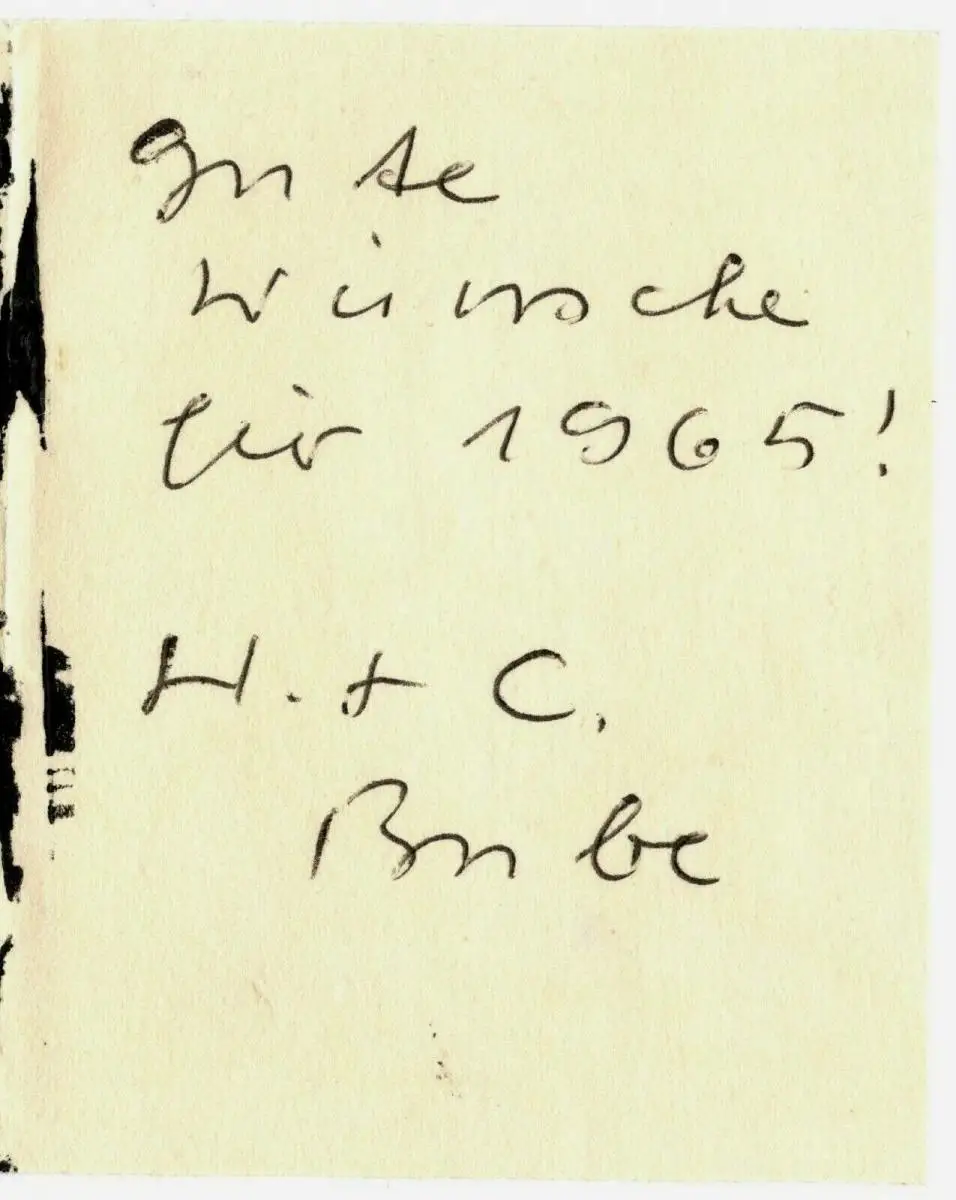 Gute
Wünsche
für 1965!
H. + C.
Bube